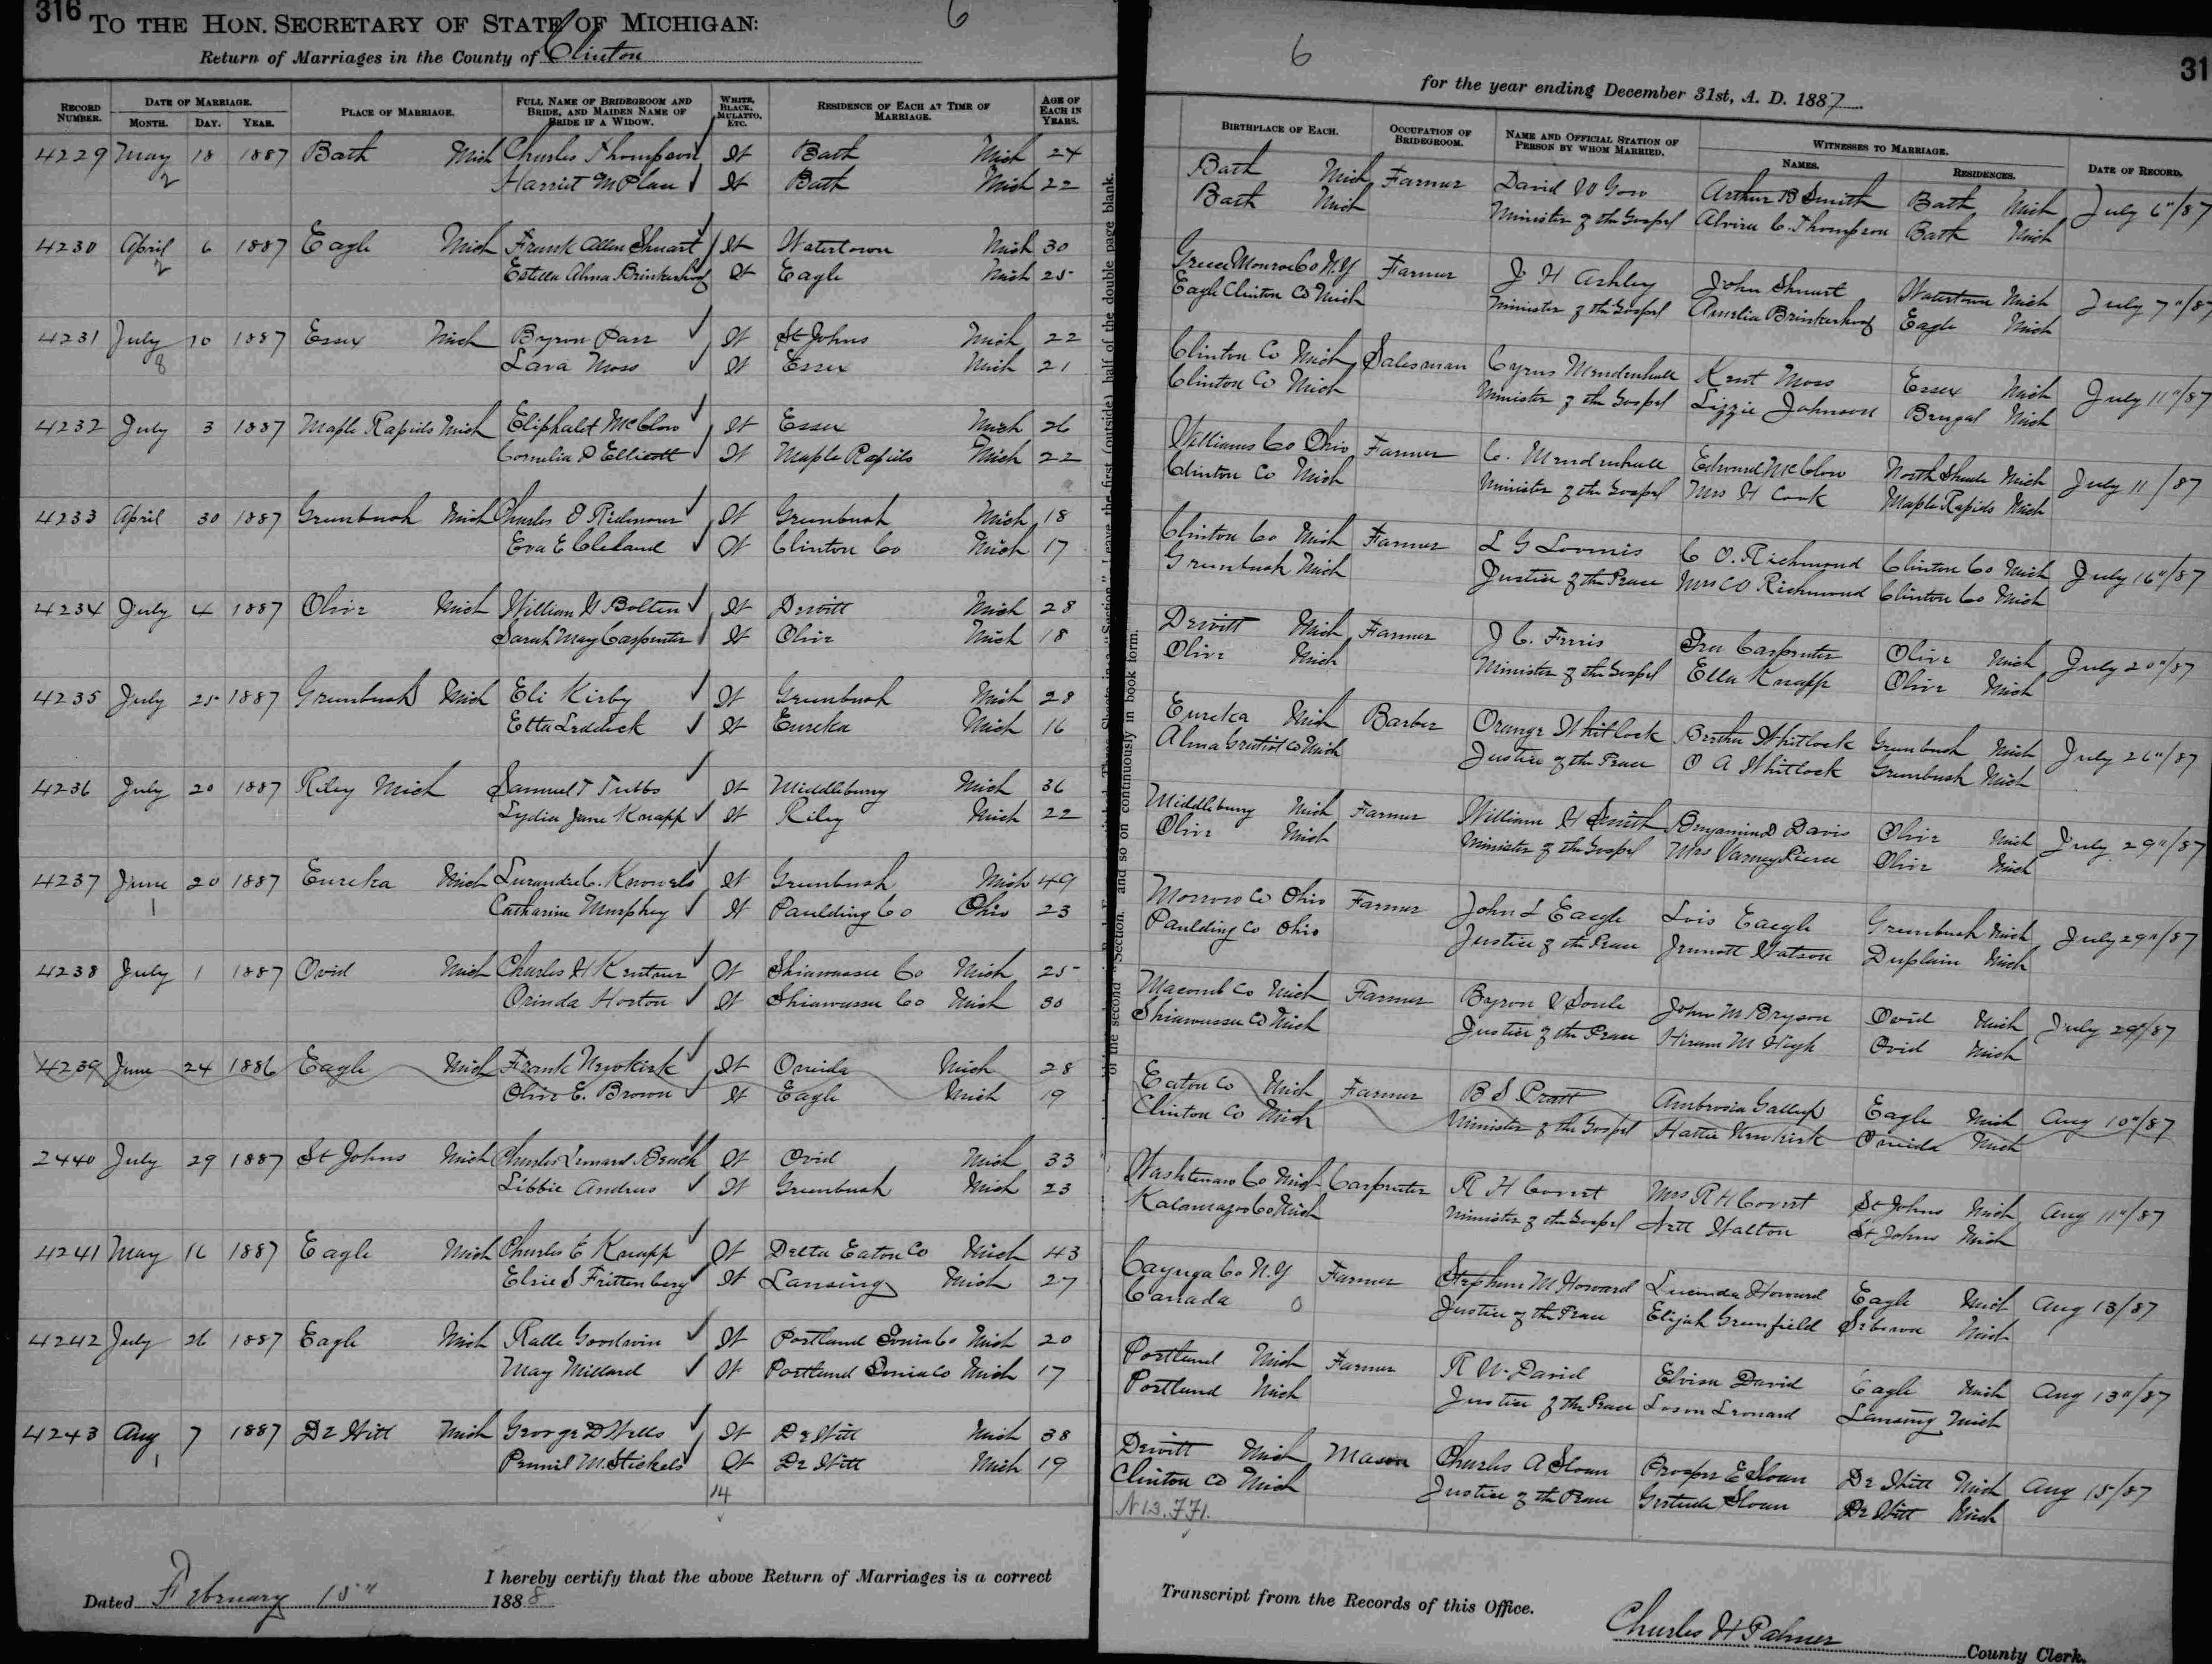 316
TO THE HON. SECRETARY OF STATE OF MICHIGAN: 6
Return of Marriages in the County of Clinton
RECORD NUMBER. DATE OF MARRIAGE. MONTH. DAY. YEAR. PLACE OF MARRIAGE. FULL NAME OF BRIDEGROOM AND BRIDE, AND MAIDEN NAME OF BRIDE IF A WIDOW. WHITE, BLACK, MULATTO, ETC. RESIDENCE OF EACH AT TIME OF MARRIAGE. AGE OF EACH IN YEARS.
4229 May 18 1887 Bath Mich Charles Thompson Wt Bath Mich 24
2 Harriet Wt Bath Mich 22
4230 April 6 1887 Eagle Mich Frank Allen Stuart Wt Watertown Mich 30
2 Estella Alma Brinkerhoof Wt Eagle Mich 25
4231 July 10 1887 Essex Mich Byron Parr Wt St Johns Mich 22
8 Lara Moss Wt Essex Mich 21
4232 July 3 1887 Maple Rapids Mich Eliphalet McClow Wt Essex Mich 26
Cornelia D Ellicott Wt Maple Rapids Mich 22
4233 April 30 1887 Greenbush Mich Charles O Richmond Wt Greenbush Mich 18
Eva E Cleland Wt Clinton Co Mich 17
4234 July 4 1887 Olive Mich William H Bolten Wt Dewitt Mich 28
Sarah May Carpenter Wt Olive Mich 18
4235 July 25 1887 Greenbush Mich Eli Kirby Wt Greenbush Mich 28
Etta Wt Eureka Mich 16
4236 July 20 1887 Riley Mich Samuel T Tubbs Wt Middlebury Mich 36
Lydia Jane Knapp Wt Riley Mich 22
4237 June 20 1887 Eureka Mich C. Knowels Wt Greenbush Mich 49
1 Catharine Murphey Wt Paulding Co Ohio 23
4238 July 1 1887 Ovid Mich Charles H Wt Shiawassee Co Mich 25
Orinda Horton Wt Shiawassee Co Mich 30
4239 June 24 1886 Eagle Mich Frank Newkirk Wt Oneida Mich 28
Olive E. Brown Wt Eagle Mich 19
2440 July 29 1887 St Johns Mich Charles Leonard Beach Wt Ovid Mich 33
Libbie Andrus Wt Greenbush Mich 23
4241 May 16 1887 Eagle Mich Charles E Knapp Wt Delta Eaton Co Mich 43
Elsie S Frittenberg Wt Lansing Mich 27
4242 July 26 1887 Eagle Mich Ralle Goodwin Wt Portland Ionia Co Mich 20
May Millard Wt Portland Ionia Co Mich 17
4243 Aug 7 1887 De Witt Mich George D Wells Wt De Witt Mich 38
1 M. Stickels Wt De Witt Mich 19
14
I hereby certify that the above Return of Marriages is a correct
Dated February 15" 1888
6
for the year ending December 31st, A. D. 1887 31
BIRTHPLACE OF EACH. OCCUPATION OF BRIDEGROOM. NAME AND OFFICIAL STATION OF PERSON BY WHOM MARRIED. WITNESSES TO MARRIAGE. NAMES. RESIDENCES. DATE OF RECORD.
Bath Mich Farmer David W Gow Arthur B Smith Bath Mich July 6"/87
Bath Mich Minister of the Gospel Alvira C. Thompson Bath Mich
Greece Monroe Co N.Y Farmer J H Ashley John Stuart Watertown Mich July 7"/87
Eagle Clinton Co Mich Minister of the Gospel Amelia Brinkerhoof Eagle Mich
Clinton Co Mich Salesman Cyrus Mendenhall Kent Moss Essex Mich July 11"/87
Clinton Co Mich Minister of the Gospel Lizzie Johnson Bengal Mich
Williams Co Ohio Farmer C. Mendenhall Edward McClow North Shade Mich July 11/87
Clinton Co Mich Minister of the Gospel Mrs H Cook Maple Rapids Mich
Clinton Co Mich Farmer L G Loomis C O. Richmond Clinton Co Mich July 16"/87
Greenbush Mich Justice of the Peace Mrs C O Richmond Clinton Co Mich
Dewitt Mich Farmer J C. Ferris Carpenter Olive Mich July 20"/87
Olive Mich Minister of the Gospel Ella Knapp Olive Mich
Eureka Mich Barber Orange Whitlock Bertha Whitlock Greenbush Mich July 26"/87
Alma Gratiot Co Mich Justice of the Peace O A Whitlock Greenbush Mich
Middlebury Mich Farmer William H Smith Benjamin D Davis Olive Mich July 29"/87
Olive Mich Minister of the Gospel Mrs Varney Pierce Olive Mich
Morrow Co Ohio Farmer John L Eaegle Lois Eaegle Greenbush Mich July 29"/87
Paulding Co Ohio Justice of the Peace Watson Duplain Mich
Macomb Co Mich Farmer Byron V Soule John M Bryson Ovid Mich July 29"/87
Shiawassee Co Mich Justice of the Peace Hiram M High Ovid Mich
Eaton Co Mich Farmer B S Pratt Ambrosia Gallup Eagle Mich Aug 10"/87
Clinton Co Mich Minister of the Gospel Hattie Newkirk Oneida Mich
Washtenaw Co Mich Carpenter R H Mrs R H St Johns Mich Aug 11"/87
Kalamazoo Co Mich Minister of the Gospel Artt Walton St Johns Mich
Cayuga Co N.Y Farmer Stephen M Howard Lucinda Howard Eagle Mich Aug 13/87
Canada 0 Justice of the Peace Elijah Greenfield Mich
Portland Mich Farmer R W. David Elvira David Eagle Mich Aug 13"/87
Portland Mich Justice of the Peace Leonard Lansing Mich
Dewitt Mich Mason Charles A Sloan Prosper E Sloan De Witt Mich Aug 15/87
Clinton Co Mich Justice of the Peace Gertrude Sloan De Witt Mich
N 13. 771.
Transcript from the Records of this Office.
Charles H Palmer County Clerk.